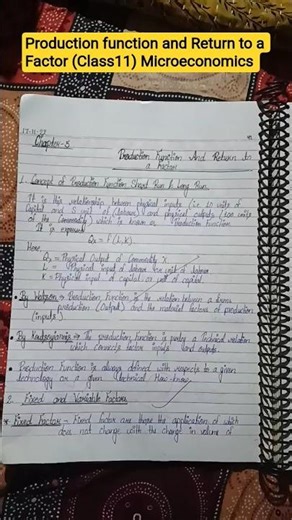 Production function and Return to a
Factor (Class11) Microeconomics
Chapter-5
Production Function And Return to
a Factor
1. Concept of Production Function Short Run & Long Run.
It is the relationship between physical inputs (i.e. 10 units of
Capital 5 unit of (Labour) and physical outputs (100 units
of the Commodity) which is known as Production Function.
It is expressed
Qx = f(L,K)
Here,
Qx = Physical Output of Commodity x
L = Physical input of labour unit of labour
K = Physical input of capital unit of capital
By Watson → Production Function is the relation between a firm's
production (Output) and the material factors of production
(inputs)
By Koutsoyiannis → The production Function is purely a Technical relation
which connects factor inputs and outputs.
Production Function is always defined with respects to a given
technology or a given technical know-how
2. Fixed and Variable Factors
Fixed Factor - Fixed factor are those the application of which
does not change with the change in volume of